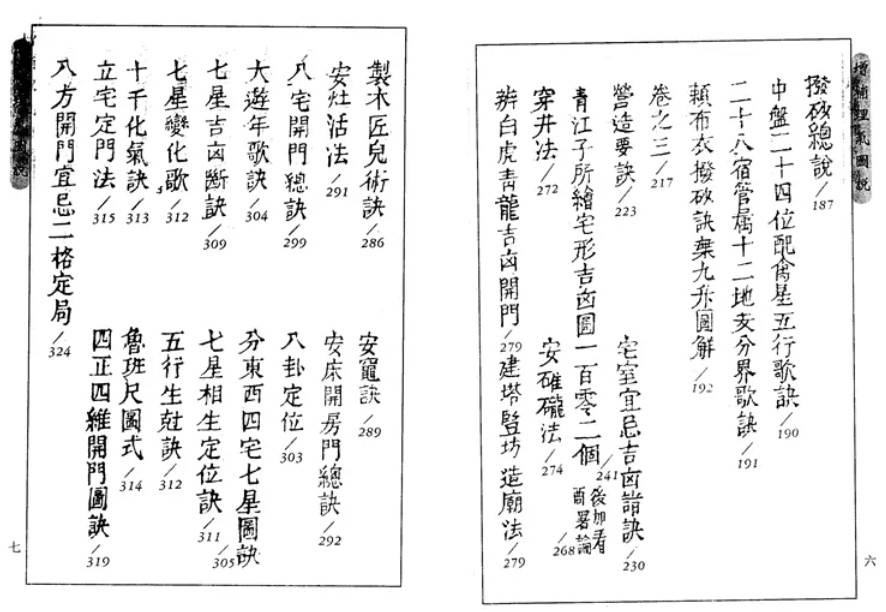 增補理氣圖說
撥砂總說/187
中盤二十四位配禽星五行歌訣/190
二十八宿管属十二地支分界歌訣/191
賴布衣撥砂訣桒九升圖解/192
卷之三/217
營造要訣/223
宅室宜忌吉凶諧訣/230
青江子所繪宅形吉凶圖一百零二個/241
後加看
酉署論/268
穿井法/272
安碓礲法/274
辨白虎青龍吉凶開門/279
建塔豎坊造廟法/279
六
製木匠兒術訣/286
安竈訣/289
安灶活法/291
安床開房門總訣/292
八宅開門總訣/299
八卦定位/303
大遊年歌訣/304
分東西四宅七星圖訣/305
七星吉凶斷訣/309
七星相生定位訣/311
七星變化歌/312
五行生尅訣/312
十干化氣訣/313
魯班尺圖式/314
立宅定門法/315
四正四維開門圖訣/319
八方開門宜忌二格定局/324
七